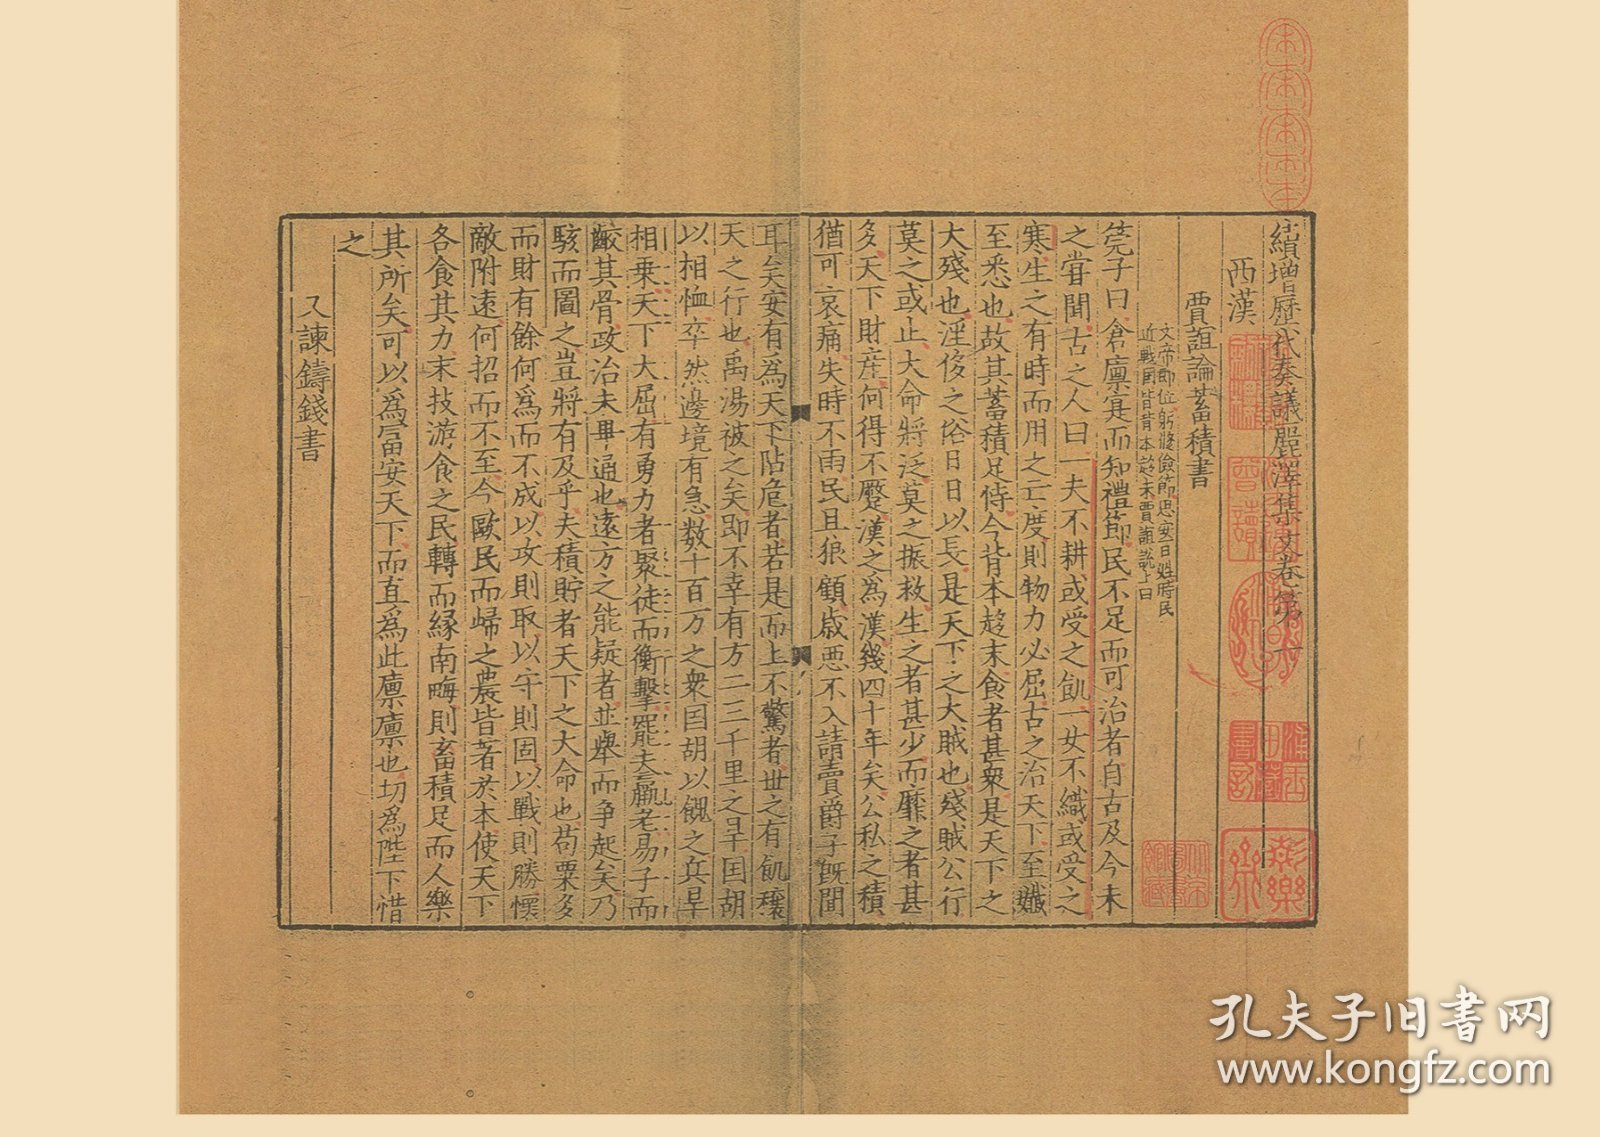 續增歷代奏議麗澤集文卷第一
西漢
賈誼論蓄積書
文帝即位躬修儉節思安百姓時民
近戰國皆背本趍末賈誼說上曰
筦子曰倉廩實而知禮節民不足而可治者自古及今未
之甞聞古之人曰一夫不耕或受之飢一女不織或受之
寒生之有時而用之亡度則物力必屈古之治天下至孅
至悉也故其蓄積足恃今背本趍末食者甚衆是天下之
大殘也淫侈之俗日日以長是天下之大賊也殘賊公行
莫之或止大命將泛莫之振救生之者甚少而靡之者甚
多天下財産何得不蹷漢之為漢幾四十年矣公私之積
猶可哀痛失時不雨民且狼顧歳惡不入請賣爵子旣聞
耳矣安有爲天下阽危者若是而上不驚者世之有飢穰
天之行也禹湯被之矣即不幸有方二三千里之旱囯胡
以相恤卒然邊境有急数十百万之衆囯胡以餽之兵旱
相乗天下大屈有勇力者聚徒而衡擊罷夫羸老易子而
齩其骨政治未畢通也逺方之能疑者並舉而争起矣乃
駭而圖之豈將有及乎夫積貯者天下之大命也苟粟多
而財有餘何爲而不成以攻則取以守則固以戰則勝懷
敵附逺何招而不至今歐民而歸之農皆著於本使天下
各食其力末技游食之民轉而緣南畮則畜積足而人樂
其所矣可以爲冨安天下而直爲此廪廪也切爲陛下惜
之
又諫鑄錢書
孔夫子旧书网
www.kongfz.com